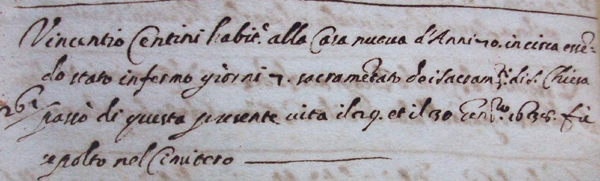 Vincentio Centini habit.e alla Casa nuova d'Anni 70. in circa essen=
do stato infermo giorni 7. sacrametato dei sacram.ti di S. Chiesa
passò di questa presente vita il 29. et il 30 Gen.ro 1638. fu
sepolto nel Cimitero